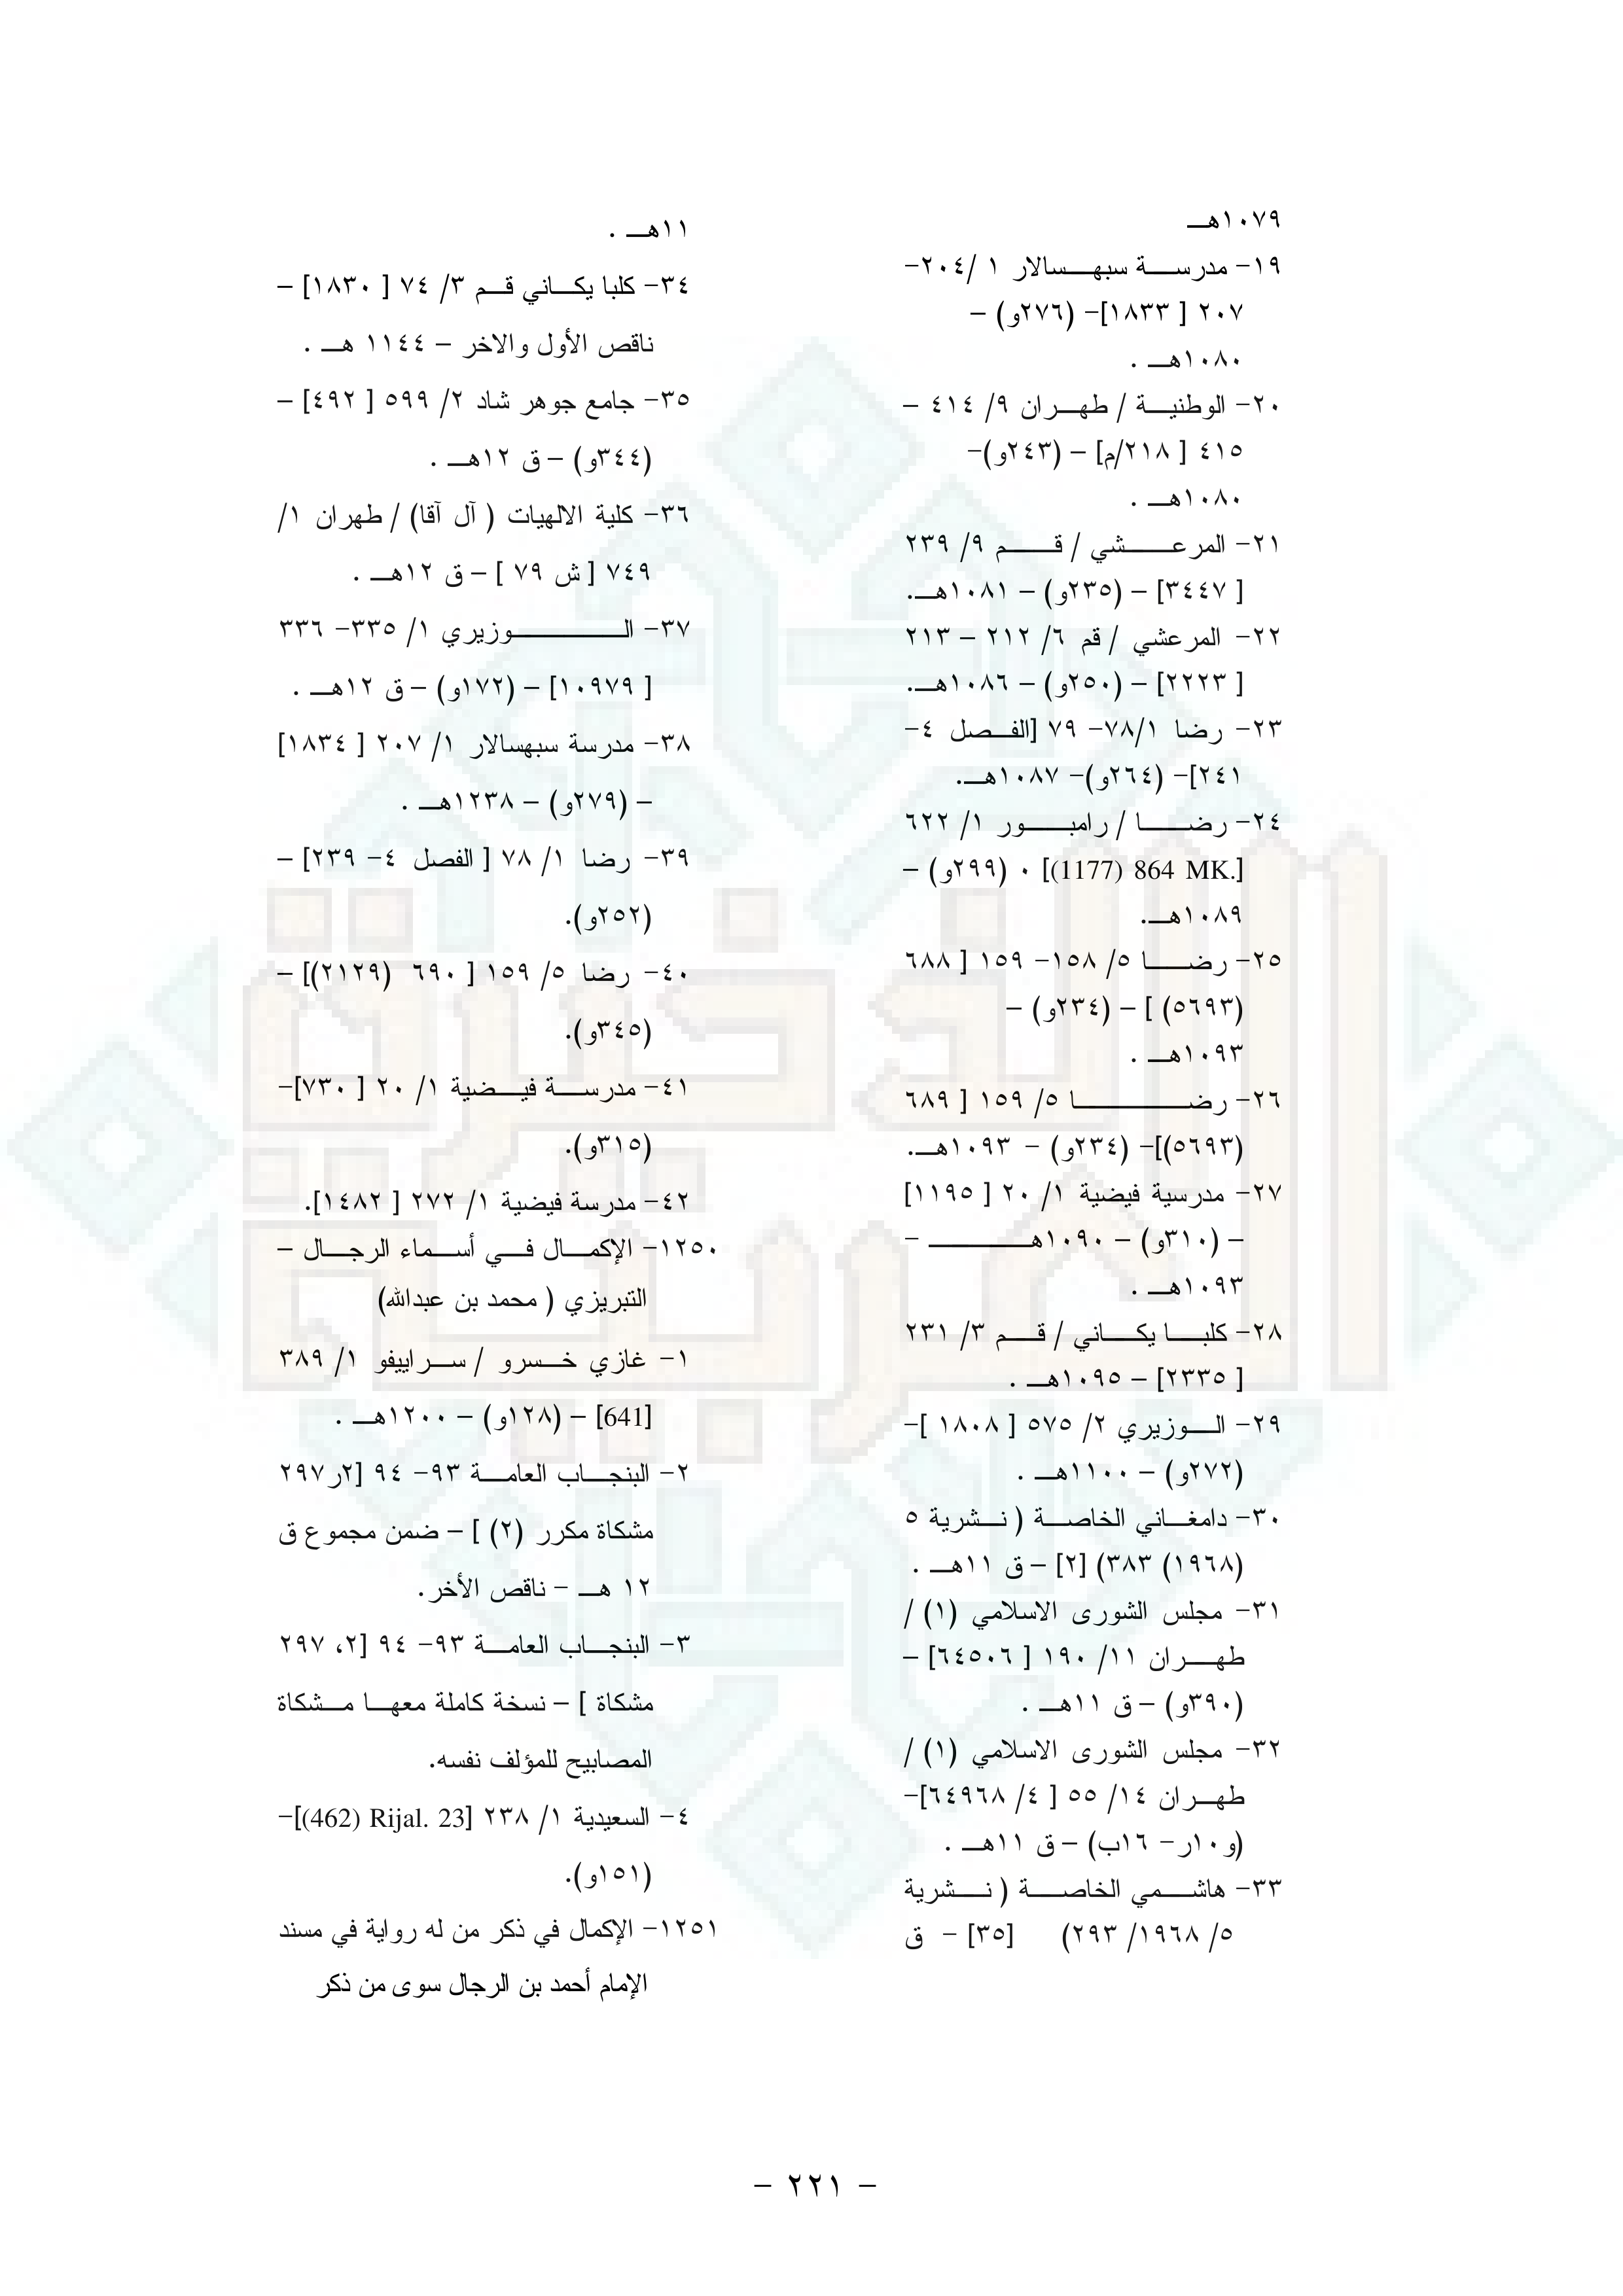 ١٠٧٩هـ
١٩- مدرسة سبهسالار ١ /٢٠٤-
٢٠٧ [ ١٨٣٣]- (٢٧٦و) –
١٠٨٠هـ .
٢٠- الوطنية / طهران ٩/ ٤١٤ –
٤١٥ [ ٢١٨/م] – (٢٤٣و)-
١٠٨٠هـ .
٢١- المرعشي / قم ٩/ ٢٣٩
[ ٣٤٤٧] – (٢٣٥و) – ١٠٨١هـ.
٢٢- المرعشي / قم ٦/ ٢١٢ – ٢١٣
[ ٢٢٢٣] – (٢٥٠و) – ١٠٨٦هـ.
٢٣- رضا ٧٨/١- ٧٩ [الفصل ٤-
٢٤١]- (٢٦٤و)- ١٠٨٧هـ.
٢٤- رضا / رامبور ١/ ٦٢٢
[(1177) 864 MK.] ٠ (٢٩٩و) –
١٠٨٩هـ.
٢٥- رضا ٥/ ١٥٨- ١٥٩ [ ٦٨٨
(٥٦٩٣) ] – (٢٣٤و) –
١٠٩٣هـ .
٢٦- رضا ٥/ ١٥٩ [ ٦٨٩
(٥٦٩٣)]- (٢٣٤و) – ١٠٩٣هـ.
٢٧- مدرسية فيضية ١/ ٢٠ [ ١١٩٥]
– (٣١٠و) – ١٠٩٠هـ –
١٠٩٣هـ .
٢٨- كلبا يكاني / قم ٣/ ٢٣١
[ ٢٣٣٥] – ١٠٩٥هـ .
٢٩- الوزيري ٢/ ٥٧٥ [ ١٨٠٨ ]-
(٢٧٢و) – ١١٠٠هـ .
٣٠- دامغاني الخاصة ( نشرية ٥
(١٩٦٨) ٣٨٣) [٢] – ق ١١هـ .
٣١- مجلس الشورى الاسلامي (١) /
طهران ١١/ ١٩٠ [ ٦٤٥٠٦] –
(٣٩٠و) – ق ١١هـ .
٣٢- مجلس الشورى الاسلامي (١) /
طهران ١٤/ ٥٥ [ ٤/ ٦٤٩٦٨]-
(و١٠ر- ١٦ب) – ق ١١هـ .
٣٣- هاشمي الخاصة ( نشرية
٥/ ١٩٦٨/ ٢٩٣) [٣٥] – ق
١١هـ .
٣٤- كلبا يكاني قم ٣/ ٧٤ [ ١٨٣٠] –
ناقص الأول والاخر – ١١٤٤ هـ .
٣٥- جامع جوهر شاد ٢/ ٥٩٩ [ ٤٩٢] –
(٣٤٤و) – ق ١٢هـ .
٣٦- كلية الالهيات ( آل آقا) / طهران ١/
٧٤٩ [ ش ٧٩ ] – ق ١٢هـ .
٣٧- الوزيري ١/ ٣٣٥- ٣٣٦
[ ١٠٩٧٩] – (١٧٢و) – ق ١٢هـ .
٣٨- مدرسة سبهسالار ١/ ٢٠٧ [ ١٨٣٤]
– (٢٧٩و) – ١٢٣٨هـ .
٣٩- رضا ١/ ٧٨ [ الفصل ٤- ٢٣٩] –
(٢٥٢و).
٤٠- رضا ٥/ ١٥٩ [ ٦٩٠ (٢١٢٩)] –
(٣٤٥و).
٤١- مدرسة فيضية ١/ ٢٠ [ ٧٣٠]-
(٣١٥و).
٤٢- مدرسة فيضية ١/ ٢٧٢ [ ١٤٨٢].
١٢٥٠- الإكمال في أسماء الرجال –
التبريزي ( محمد بن عبدالله)
١- غازي خسرو / سراييفو ١/ ٣٨٩
[641] – (١٢٨و) – ١٢٠٠هـ .
٢- البنجاب العامة ٩٣- ٩٤ [٢ر٢٩٧
مشكاة مكرر (٢) ] – ضمن مجموع ق
١٢ هـ – ناقص الأخر.
٣- البنجاب العامة ٩٣- ٩٤ [٢، ٢٩٧
مشكاة ] – نسخة كاملة معها مشكاة
المصابيح للمؤلف نفسه.
٤- السعيدية ١/ ٢٣٨ [(462) Rijal. 23]-
(١٥١و).
١٢٥١- الإكمال في ذكر من له رواية في مسند
الإمام أحمد بن الرجال سوى من ذكر
– ٢٢١ –
الذخيرة
العربية